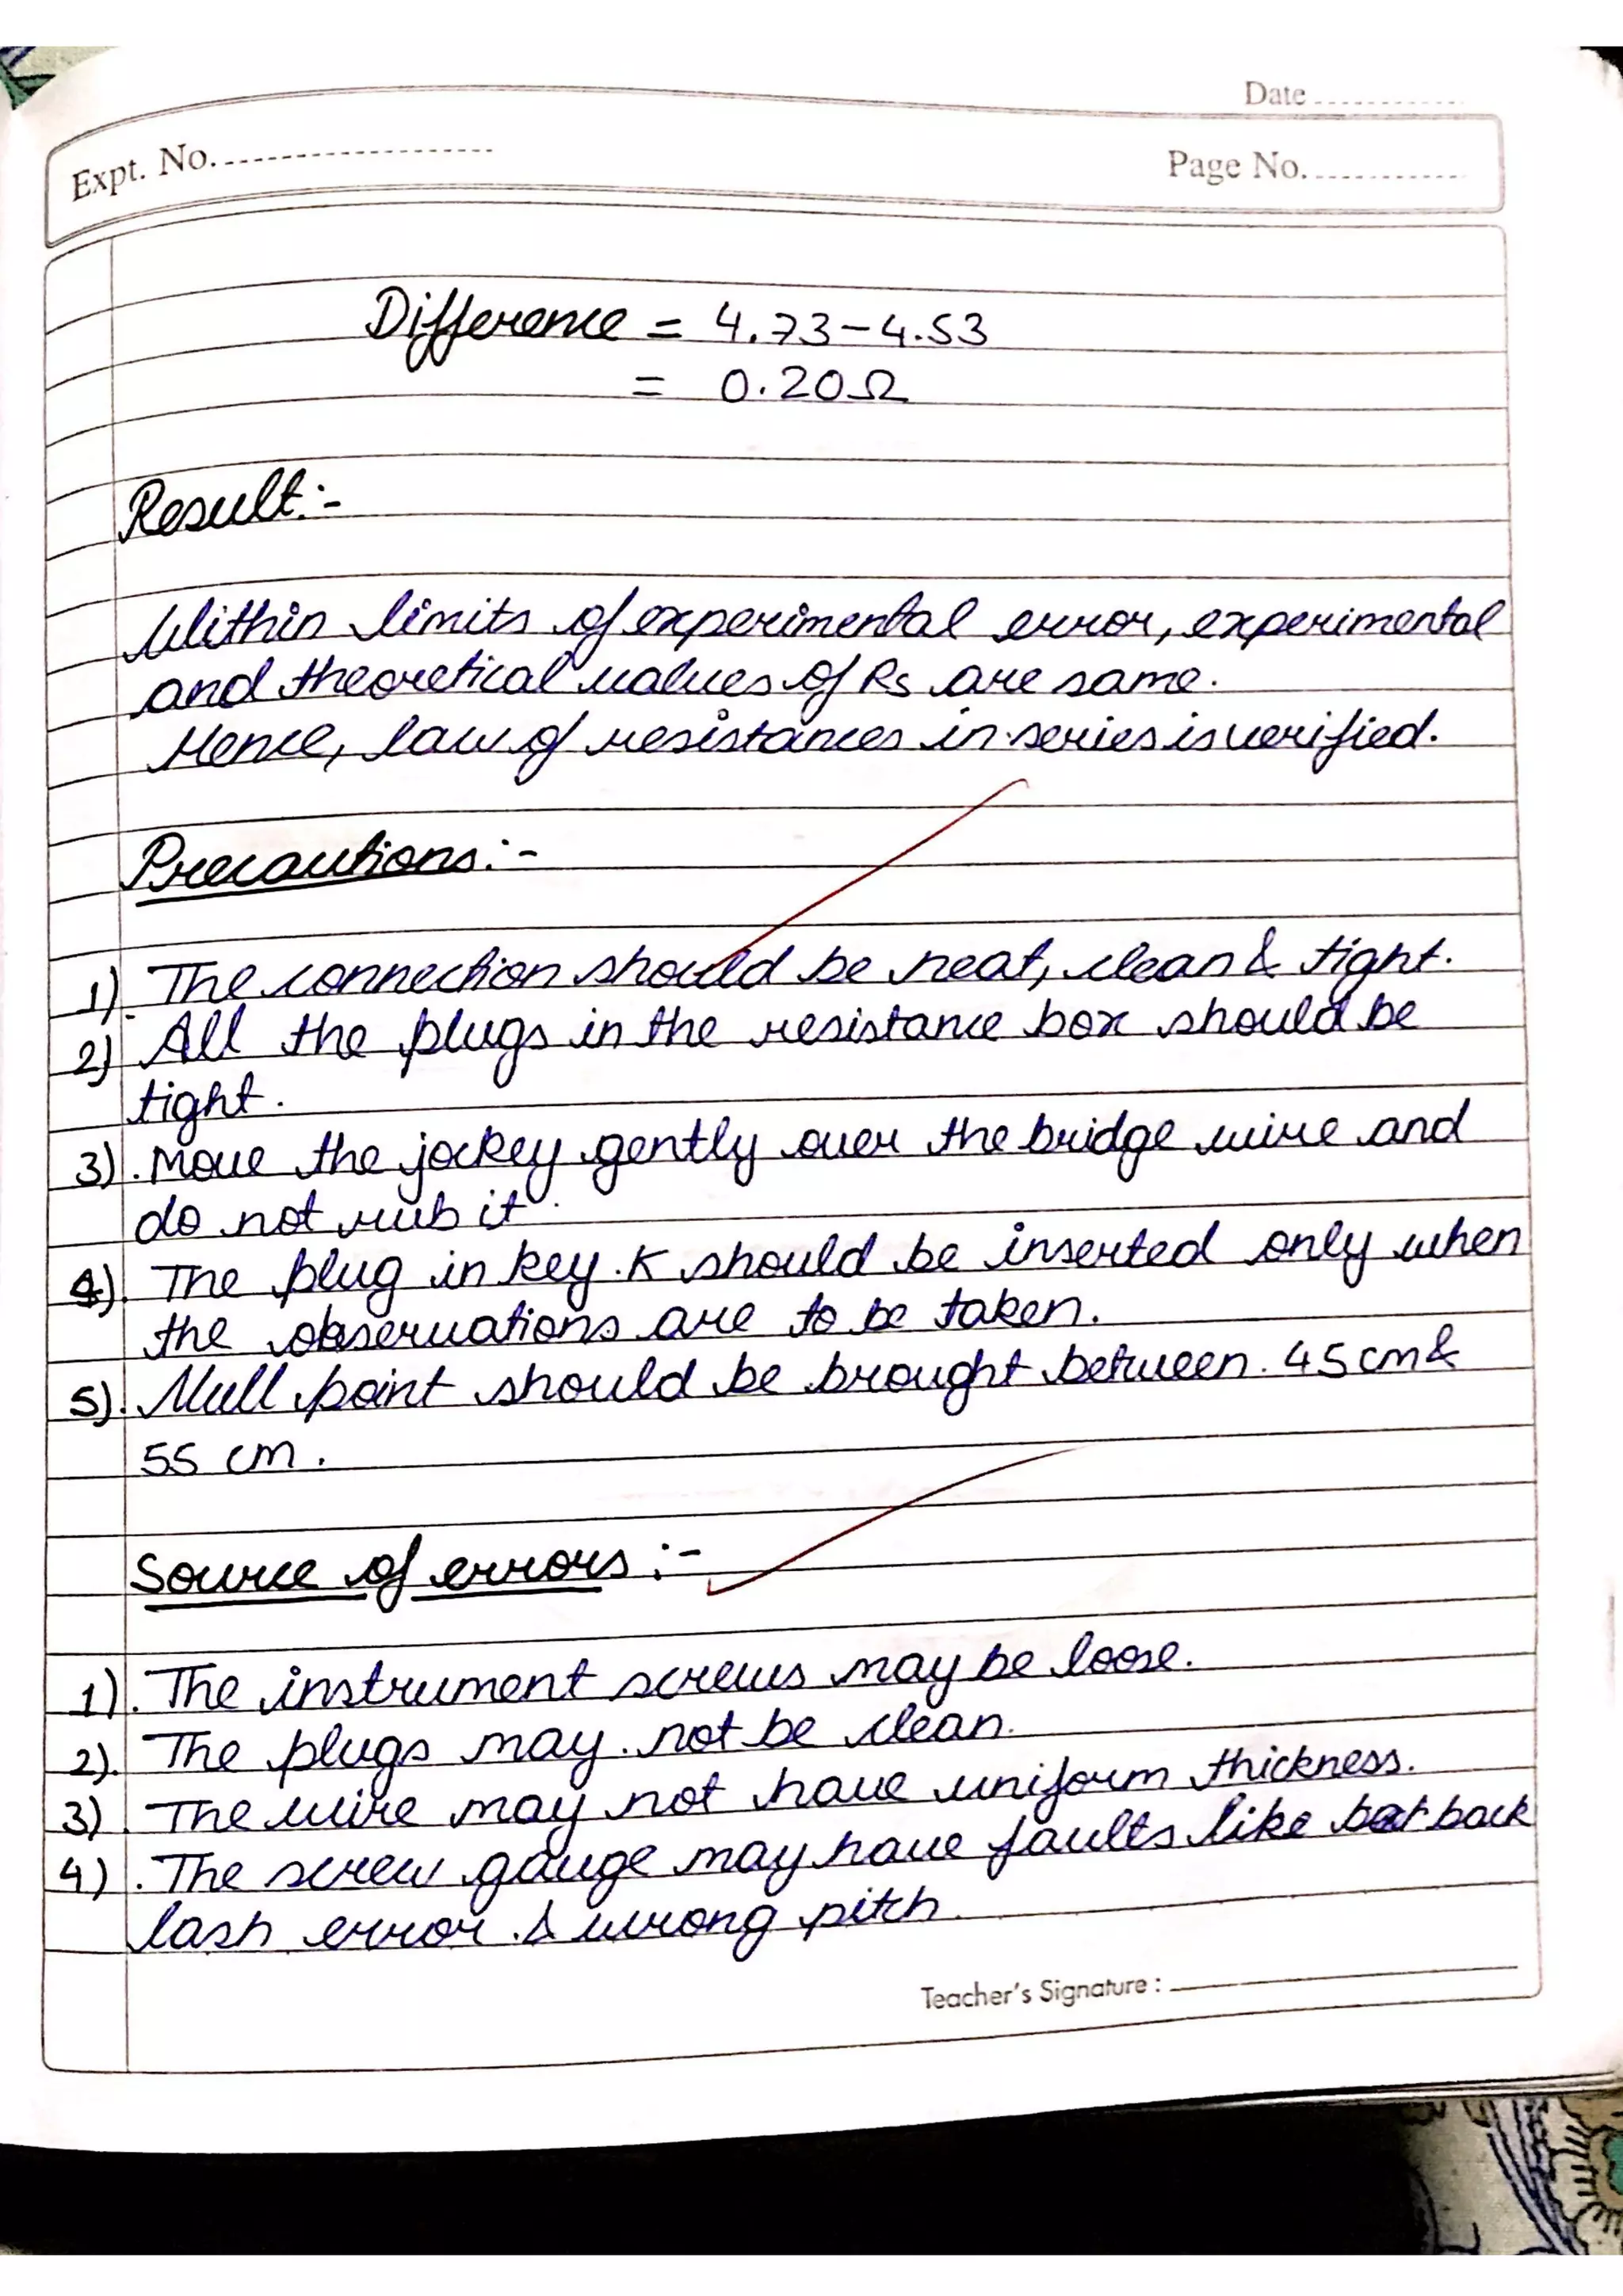 Date
Expt. No.
Page No.
Difference = 4.73-4.53
= 0.20Ω
Result:-
Within limits of experimental error, experimental
and theoretical values of Rs are same.
Hence, law of resistances in series is verified.
Precautions:-
1) The connection should be neat, clean & tight.
2) All the plugs in the resistance box should be
tight.
3). Move the jockey gently over the bridge wire and
do not rub it.
4). The plug in key K should be inserted only when
the observations are to be taken.
5). Null point should be brought between 45 cm &
55 cm.
Source of errors:-
1). The instrument screws may be loose.
2). The plugs may not be clean.
3). The wire may not have uniform thickness.
4). The screw gauge may have faults like back
lash error & wrong pitch.
Teacher's Signature :